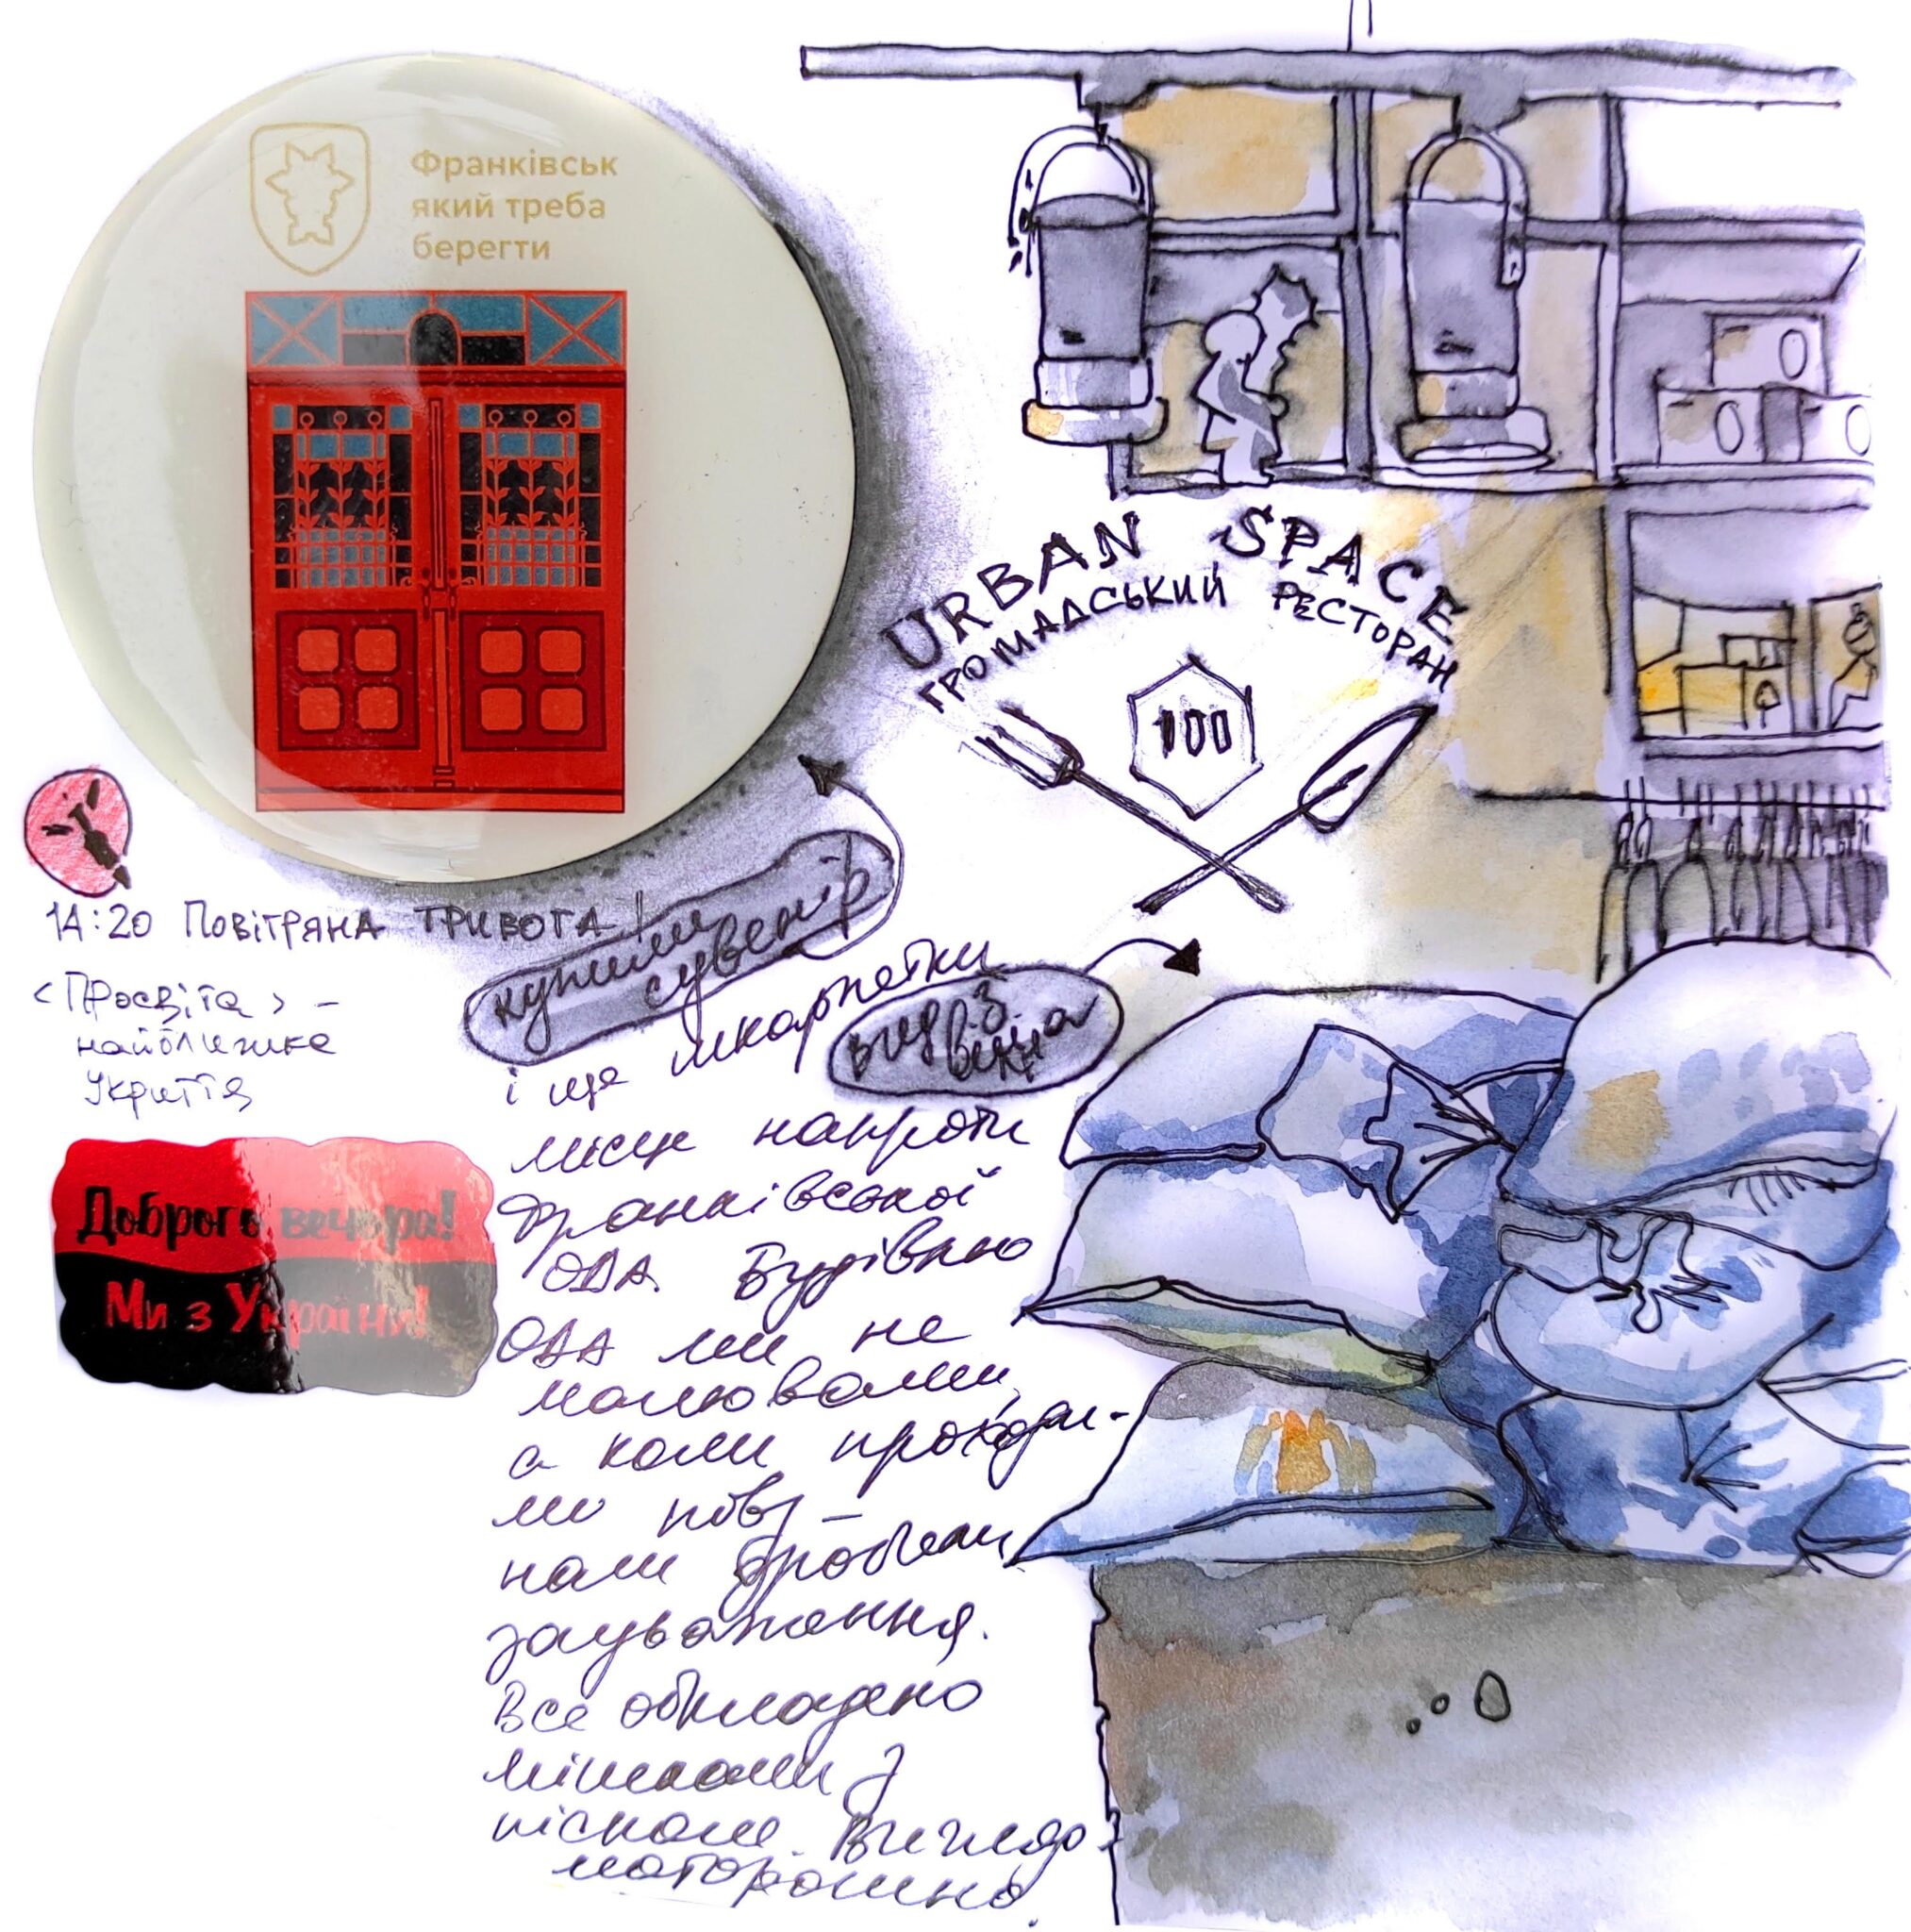 Франківськ
який треба
берегти
URBAN SPACE
ГРОМАДСЬКИЙ РЕСТОРАН
100
14:20 Повітряна тривога!
<Просвіта> –
найближче
укриття
купили
сувенір
і ще шкарпетки
вид з
вікна
Доброго вечора!
Ми з України!
місце напроти
Франківської
ОДА. Будівлю
ОДА ми не
малювали,
а коли проходи-
ли повз –
нам зробили
зауваження.
Все обкладено
мішками з
піском. Вигляда
моторошно.